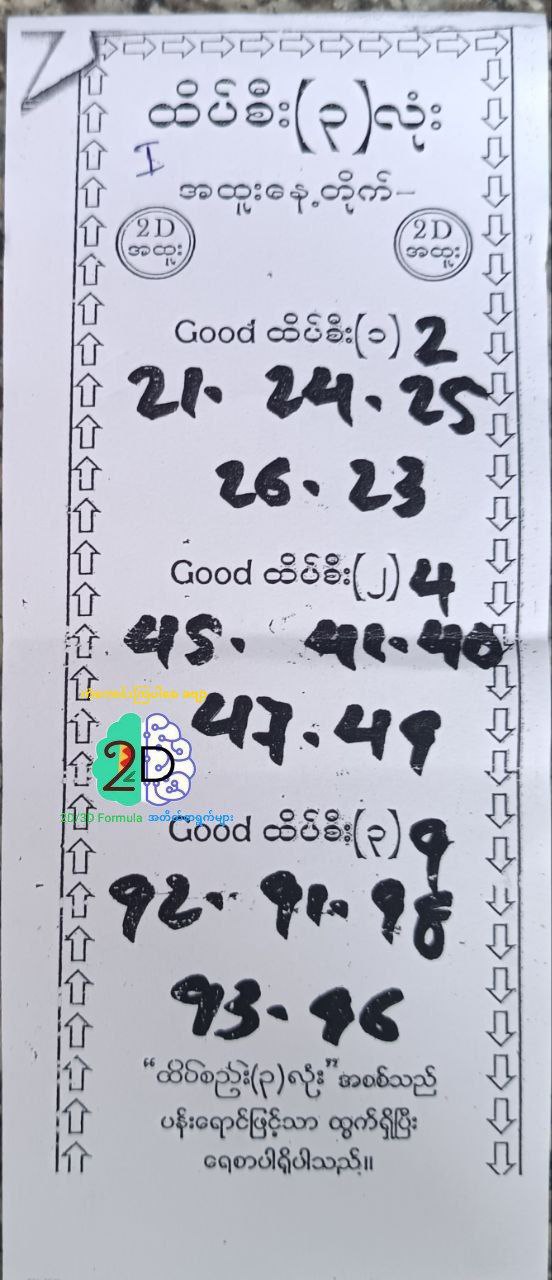 ထိပ်စီး(၃)လုံး
I
အထူးနေ့တိုက်-
2D
အထူး
2D
အထူး
Good ထိပ်စီး(၁) 2
21. 24. 25
26. 23
Good ထိပ်စီး(၂) 4
45. 41. 40
47. 49
2D
2D/3D Formula အတိတ်စာရွက်များ
Good ထိပ်စီး(၃) 9
92. 91. 98
93. 96
“ထိပ်စည်း(၃)လုံး” အစစ်သည်
ပန်းရောင်ဖြင့်သာ ထွက်ရှိပြီး
ရေစာပါရှိပါသည်။